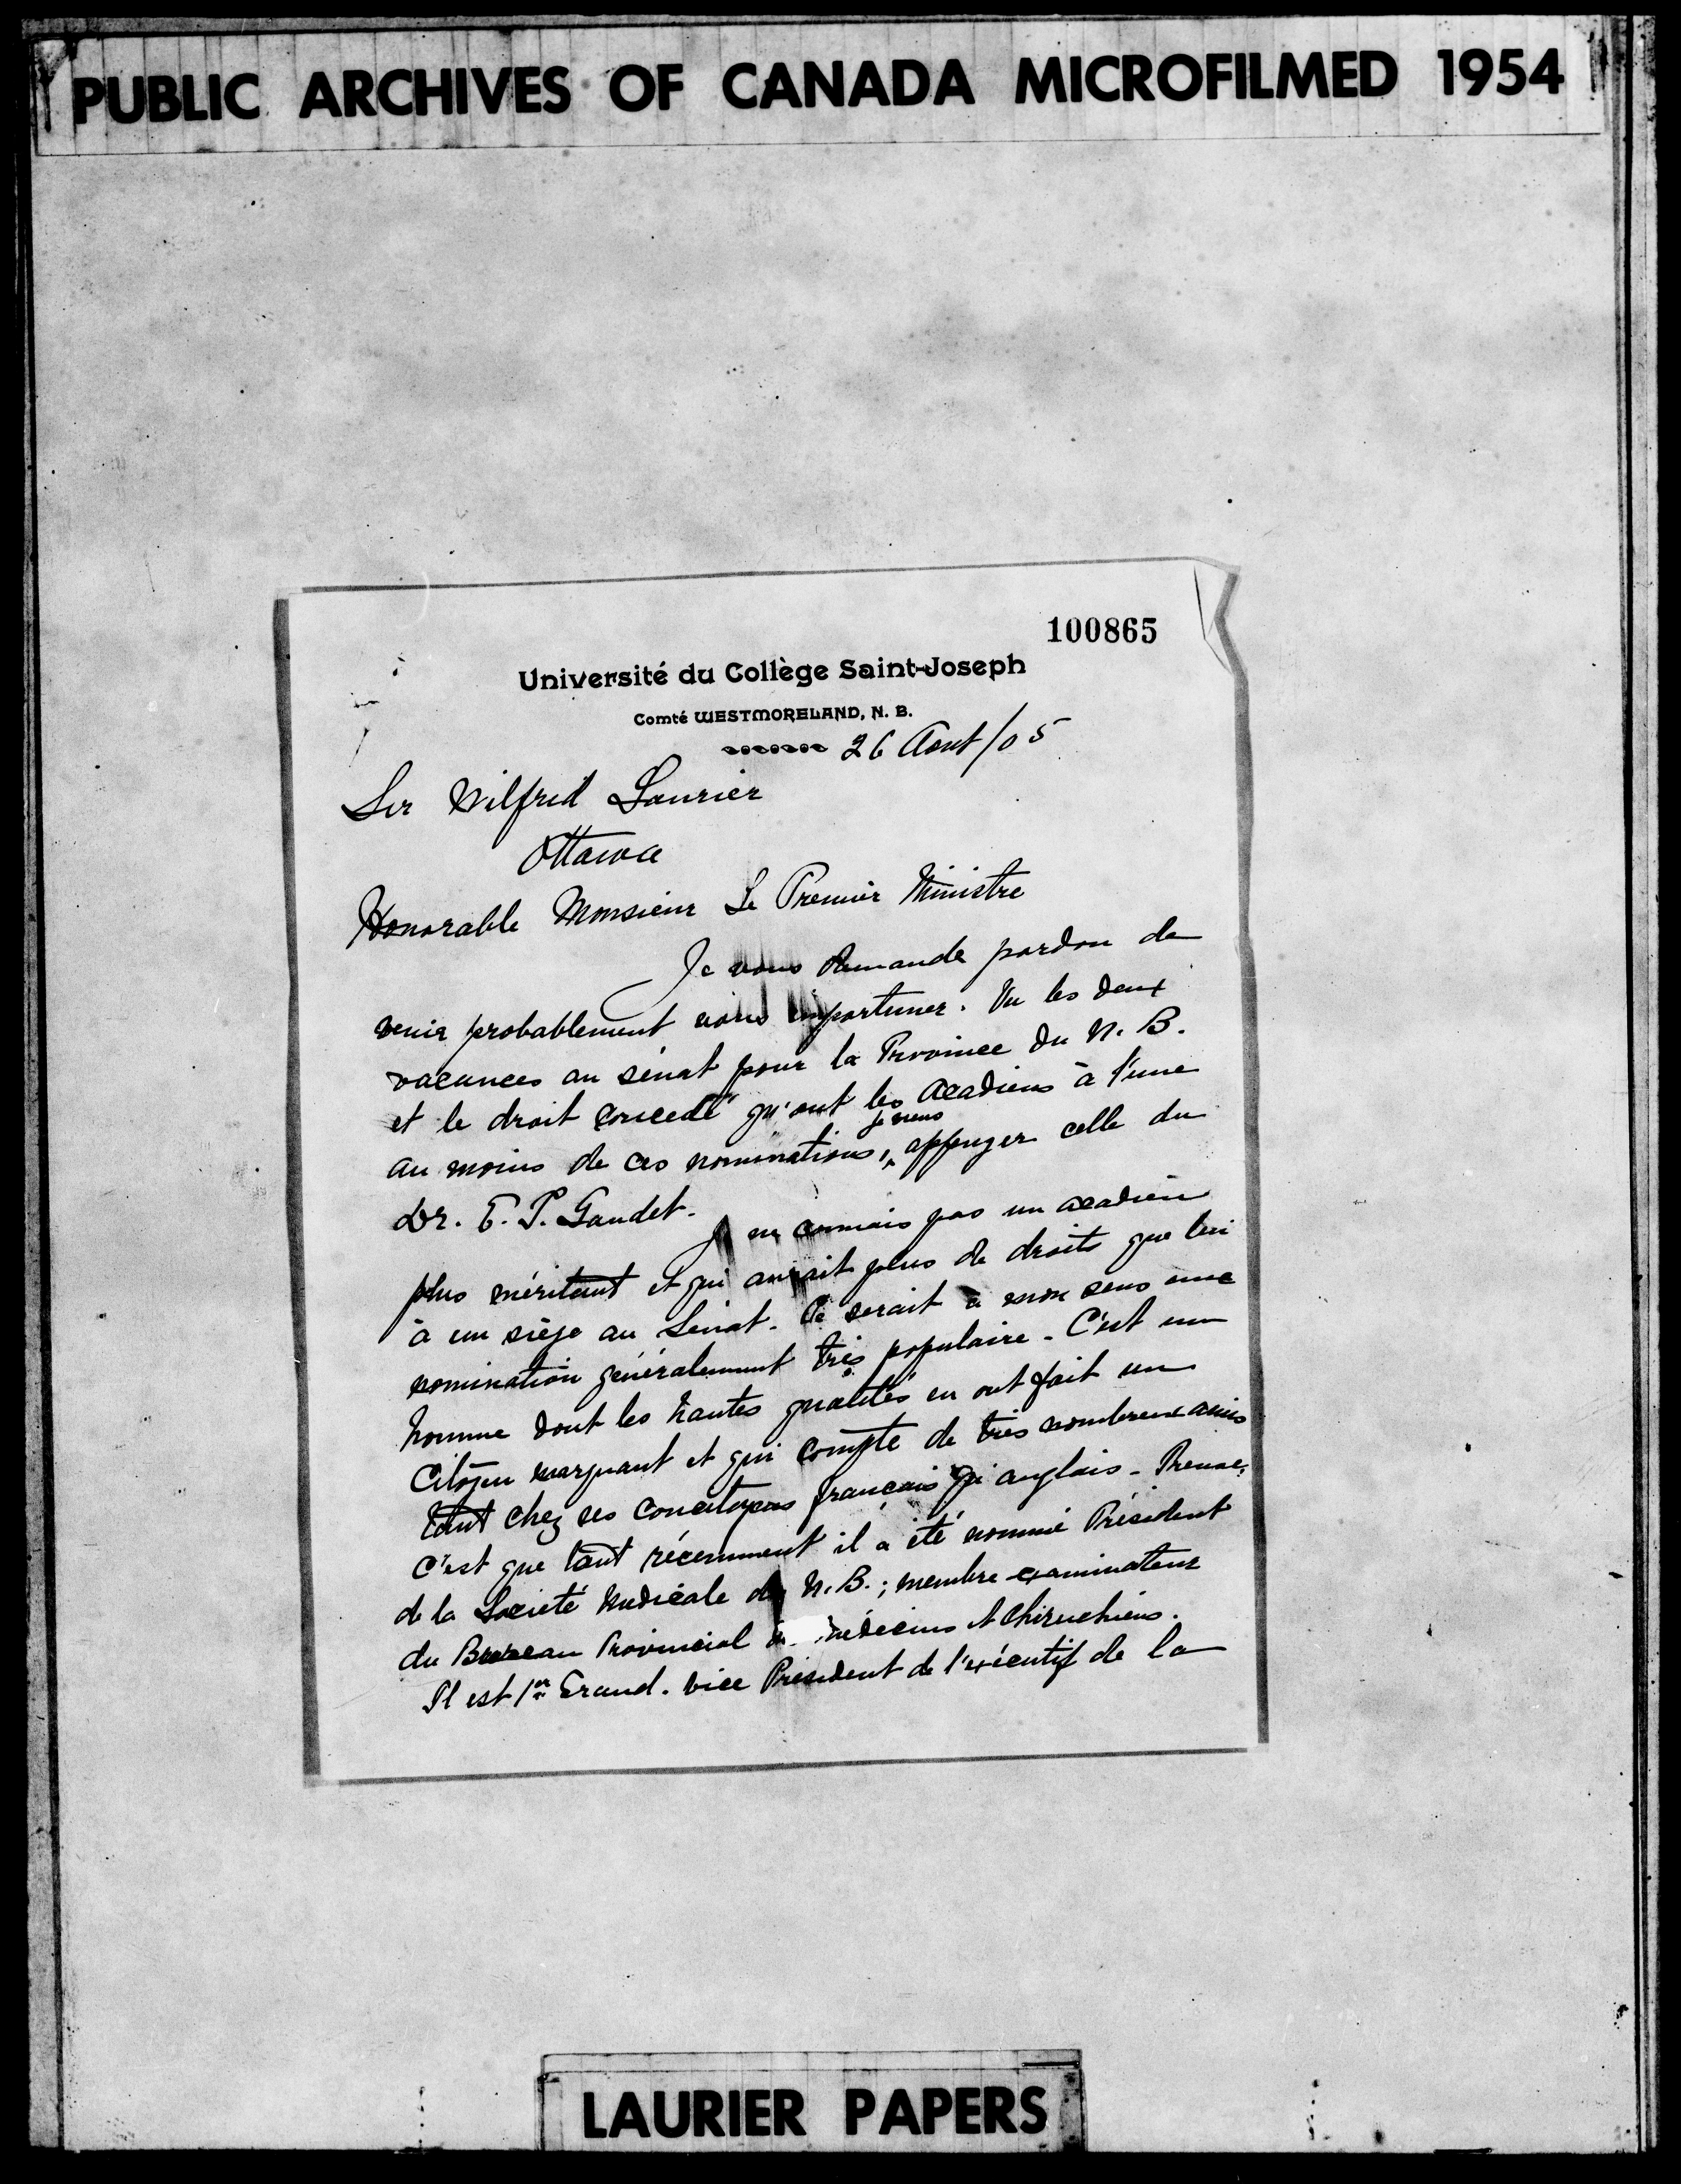 PUBLIC ARCHIVES OF CANADA MICROFILMED 1954
100865
Université du Collège Saint-Joseph
Comté WESTMORELAND, N. B.
26 Aout/05
Sir Wilfrid Laurier
Ottawa
Honorable Monsieur Le Premier Ministre
Je vous demande pardon de
venir probablement vous importuner. Vu les deux
vacances au sénat pour la Province du N. B.
et le droit concedé qu'ont les Acadiens à l'une
au moins de ces nominations, je viens appuyer celle du
Dr. E. P. Gaudet.
Je ne connais pas un acadien
plus méritant et qui aurait plus de droits que lui
à un siège au Sénat. Ce serait à mon sens une
nomination généralement très populaire. C'est un
homme dont les hautes qualités en ont fait un
Citoyen marquant et qui compte de très nombreux amis
tant chez ses concitoyens français qu' anglais. Preuve,
c'est que tout récemment il a été nommé Président
de la Société Médicale du N. B.; membre examinateur
du Bureau Provincial médecins et Chiruchiens.
Il est 1er Grand. Vice Président de l'exécutif de la
LAURIER PAPERS